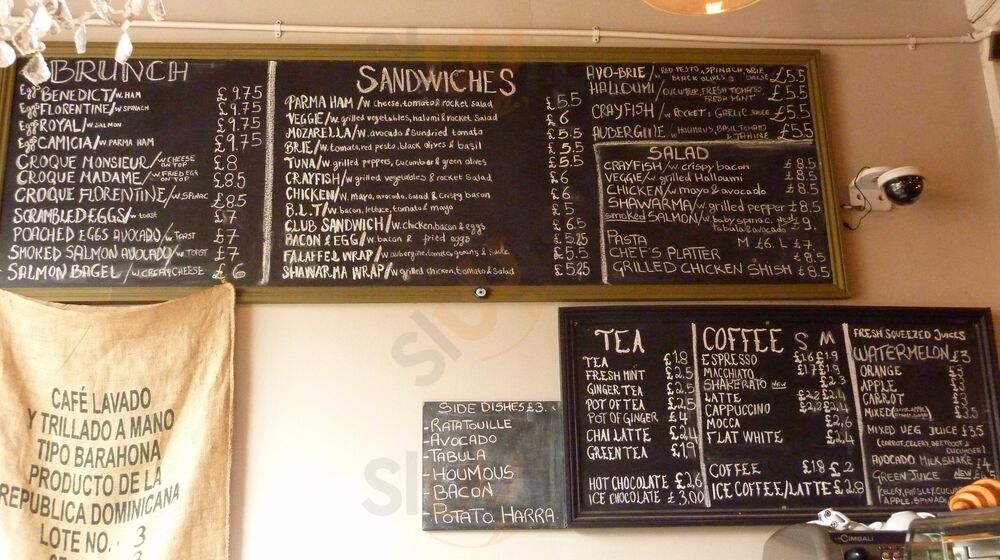 BRUNCH
Eggs BENEDICT/w. HAM £9.75
Eggs FLORENTINE/w SPINACH £9.75
Eggs ROYAL/w. SALMON £9.75
Eggs CAMICIA/w PARMA HAM £9.75
CROQUE MONSIEUR/w. CHEESE ON TOP £8
CROQUE MADAME/w. FRIED EGG ON TOP £8.5
CROQUE FLORENTINE/w. SPINAC £8.5
SCRAMBLED EGGS/w toast £7
POACHED EGGS AVOCADO/w TOAST £7
SMOKED SALMON AVOCADO/w. TOAST £7
SALMON BAGEL/w CREAM CHEESE £6
SANDWICHES
PARMA HAM/w cheese, tomato & rocket salad £5.5
VEGGIE/w grilled vegetables, halumi & rocket Salad £6
MOZARELLA/w. avocado & Sundried tomato £5.5
BRIE/w. tomato, red pesto, black olives & basil £5.5
TUNA/w grilled peppers, cucumber & green olives £5.5
CRAYFISH/w grilled vegetables & rocket salad £6
CHICKEN/w. mayo, avocado, salad & crispy bacon £6
B.L.T/w. bacon, lettuce, tomato & mayo £5
CLUB SANDWICH/w. chicken, bacon & eggs £6.5
BACON & EGG/w. bacon & fried eggs £5.25
FALAFFEL WRAP/w aubergine, tomato, greens & Sauce £5.5
SHAWARMA WRAP/w grilled chicken, tomato & Salad £5.25
AVO-BRIE/w RED PESTO, SPINACH, BRIE BLACK OLIVES & CHEESE £5.5
HALLOUMI/CUCUMBER, FRESH TOMATO FRESH MINT £5.5
CRAYFISH/w ROCKET & GARLIC SAUCE £5.5
AUBERGINE/w HOUMOUS, BASIL, TOMATO & TAHINE £5.5
SALAD
CRAYFISH/w crispy bacon £8.5
VEGGIE/w. grilled Halloumi £8.5
CHICKEN/w mayo & avocado £8.5
SHAWARMA/w. grilled pepper £8.5
smoked SALMON/w baby spinac, tabula & avocado £9.
PASTA M £6. L £7
CHEF'S PLATTER £8.5
GRILLED CHICKEN SHISH £8.5
TEA
TEA £1.8
FRESH MINT £2.5
GINGER TEA £2.5
POT OF TEA £2.5
POT OF GINGER £4
CHAI LATTE £2.4
GREEN TEA £1.9
HOT CHOCOLATE £2.6
ICE CHOCOLATE £3.00
COFFEE S M
ESPRESSO £1.6 £1.9
MACCHIATO £1.7 £1.9
SHAKERATO NEW £2.3
LATTE £2.2 £2.4
CAPPUCCINO £2.2 £2.4
MOCCA £2.6
FLAT WHITE £2.4
COFFEE £1.8 £2
ICE COFFEE/LATTE £2.8
FRESH SQUEEZED JUICES
WATERMELON £3
ORANGE £3
APPLE £3
CARROT £3
MIXED £3.5
MIXED VEG JUICE £3.5
(CARROT, CELERY, BEETROOT & CUCUMBER)
AVOCADO MILKSHAKE £4
GREEN JUICE NEW
(CELERY, PARSLEY, CUCU
APPLE, SPINA
SIDE DISHES £3.
-RATATOUILLE
-AVOCADO
-TABULA
-HOUMOUS
-BACON
-POTATO HARRA
CAFÉ LAVADO
Y TRILLADO A MANO
TIPO BARAHONA
PRODUCTO DE LA
REPUBLICA DOMINICANA
LOTE NO. 3
CIMBALI